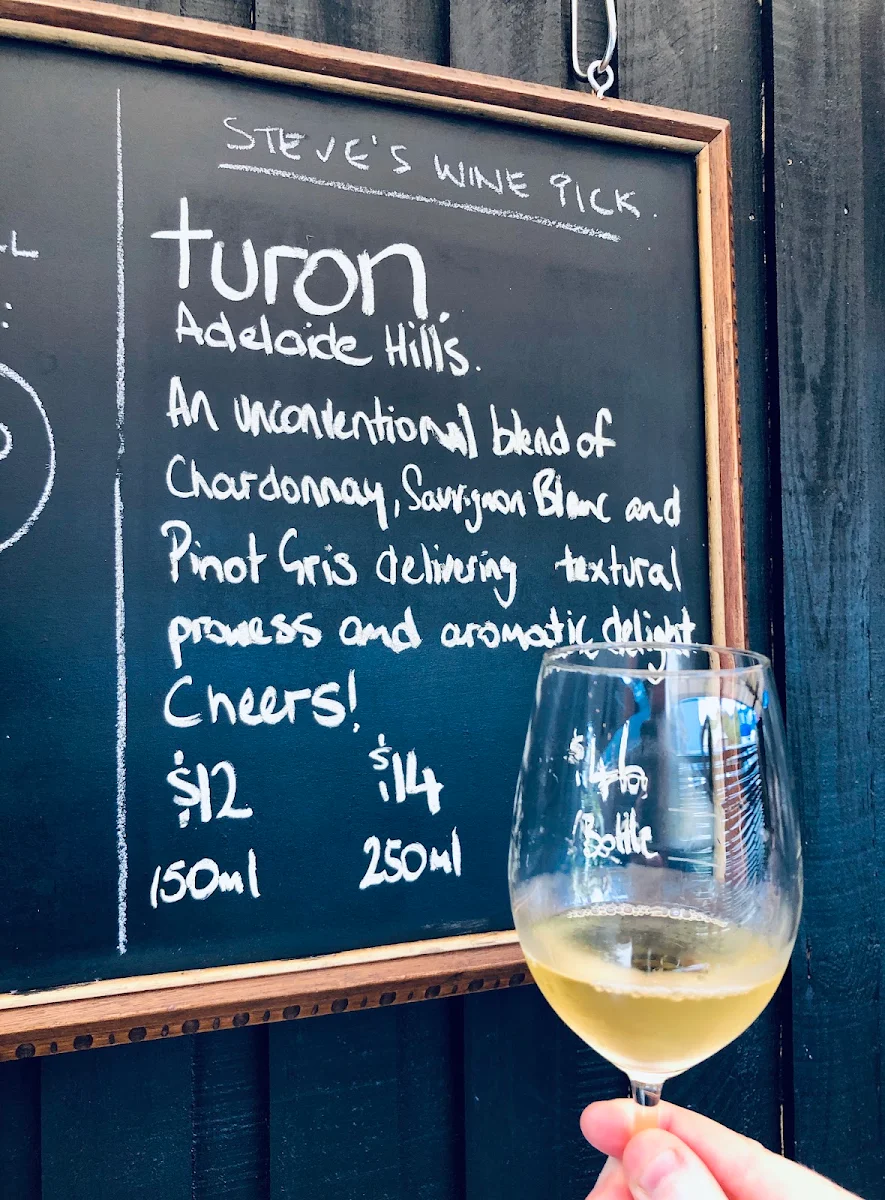 L
:
STEVE'S WINE PICK.
turon.
Adelaide Hill's.
An unconventional blend of
Chardonnay, Sauvignon Blanc and
Pinot Gris delivering textural
prowess and aromatic delight.
Cheers!
$12 $14 $46
150ml 250ml Bottle